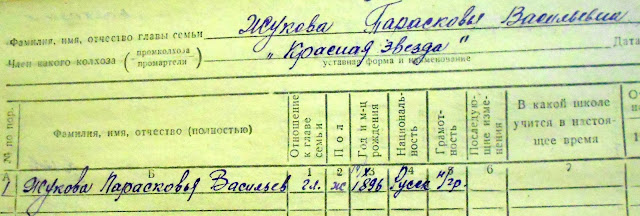 Жукова Парасковья Васильевна
Фамилия, имя, отчество главы семьи
„Красная звезда"
Член какого колхоза (промколхоза промартели)
уставная форма и наименование
Дата
№ по пор.
Фамилия, имя, отчество (полностью)
Отношение к главе семьи
Пол
Год и м-ц рождения
Национальность
Грамотность
Последующие изменения
В какой школе учится в настоящее время
А Б 1 2 3 4 5 6 7
1 Жукова Парасковья Васильев гл. ж 1896 Русск н/гр.